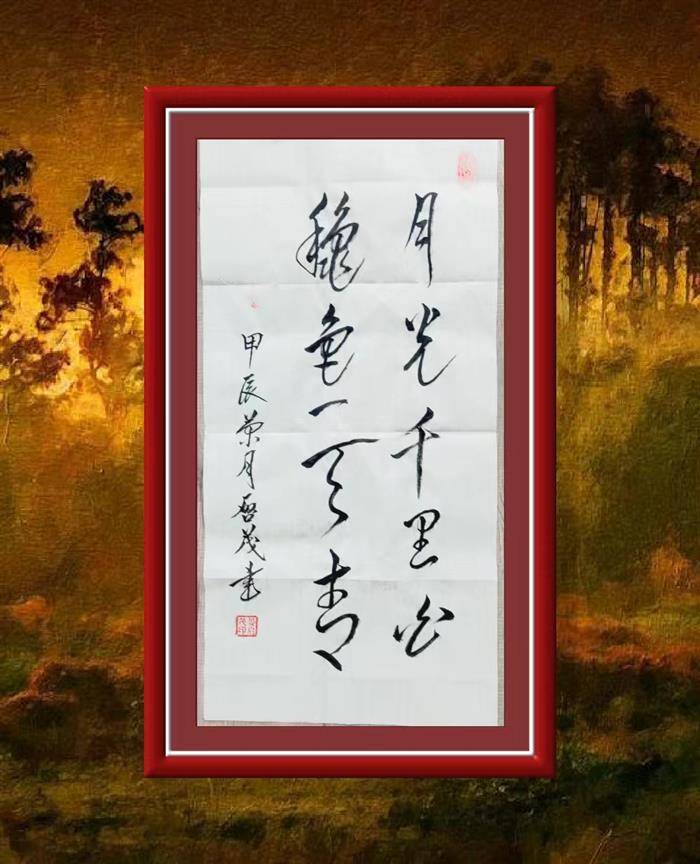 月光千里白
龝色一天青
甲辰菊月啓茂書